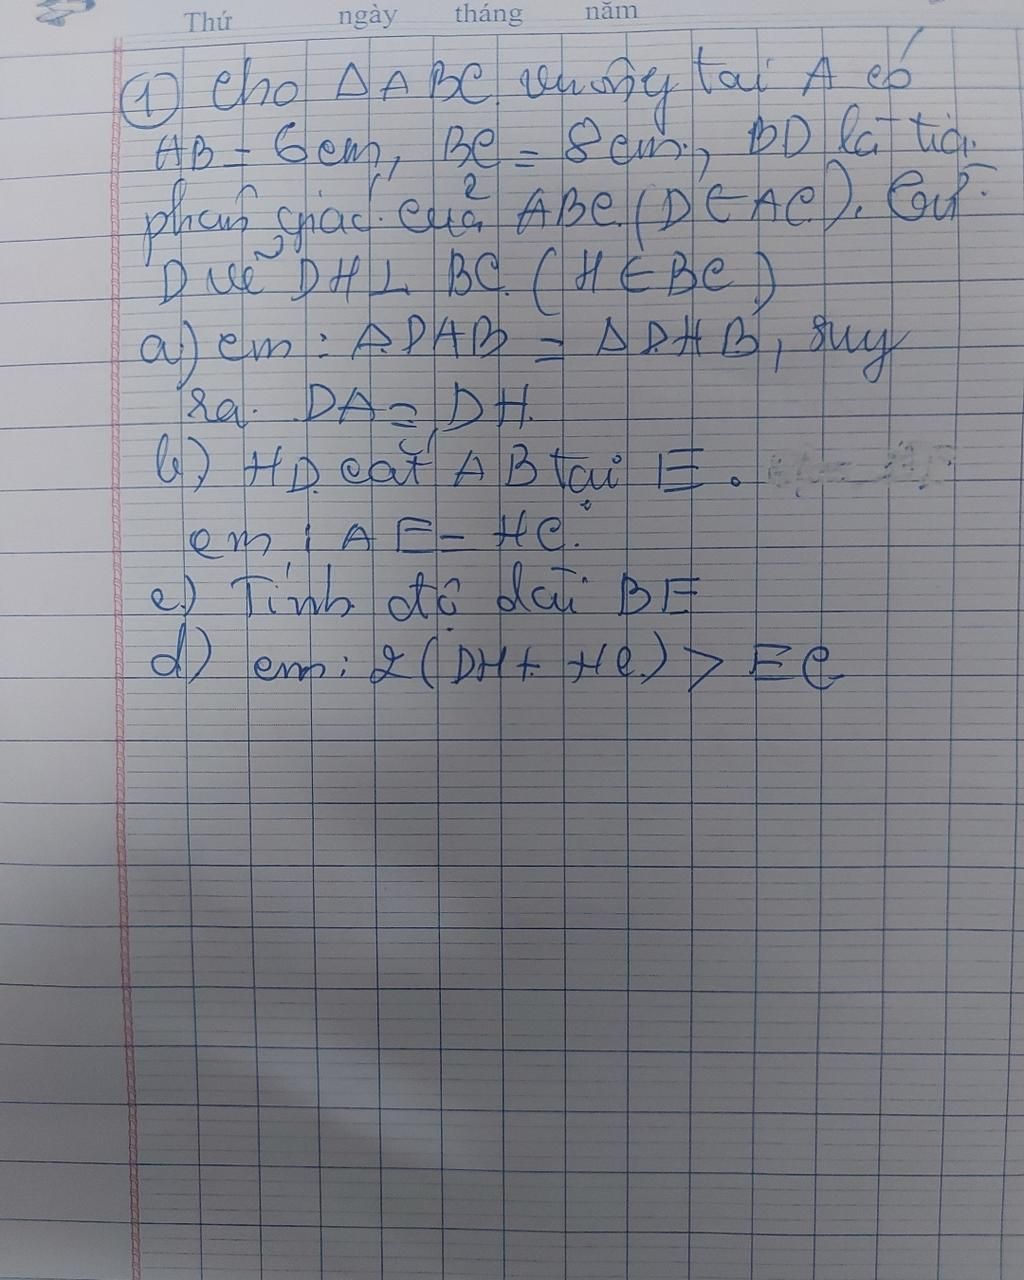 Thứ ngày tháng năm
① Cho ΔABC vuông tại A có
AB = 6cm, BC = 8cm, BD là tia
phân giác của ABC (D ∈ AC). Từ
D vẽ DH ⊥ BC (H ∈ BC)
a) cm: ΔDAB = ΔDHB, suy
ra DA = DH.
b) HD cắt AB tại E.
cm: AE = HC.
c) Tính độ dài BE
d) cm: 2(DH + HC) > EC